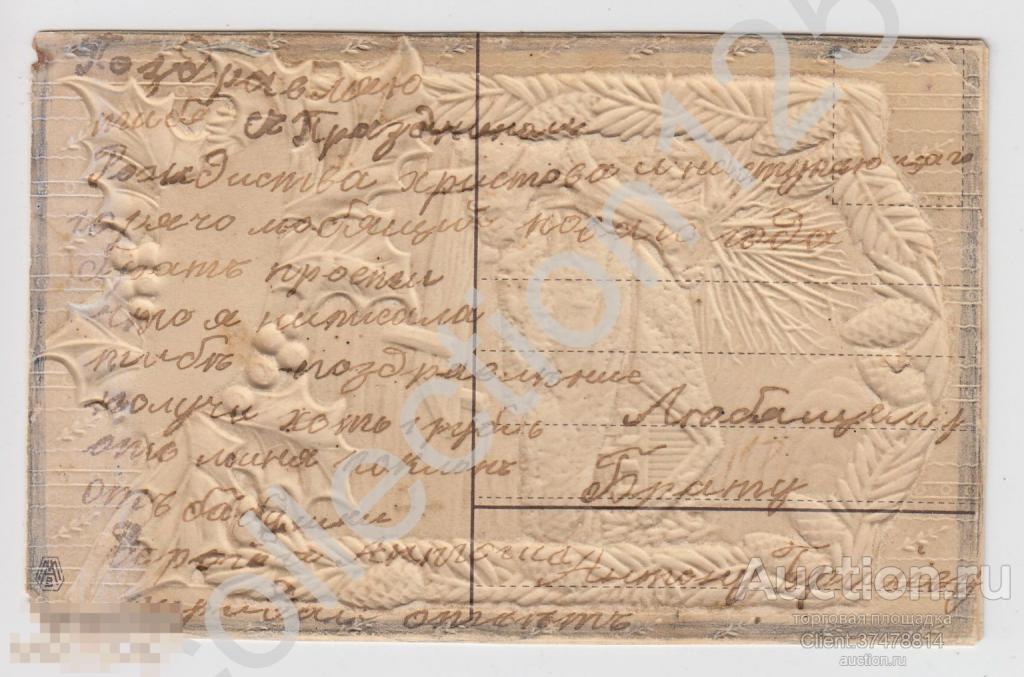 Поздравляю
тибе съ Праздником
Рождества Христова и наступающаго
горячо любящий новаго года
братъ прости
што я написала
тибѣ поздравление
получи хоть грубь
ото миня поклонъ
отъ бабашки
Любащему
Брату
Антону
отвѣтъ
Collection 125
Auction.ru
торговая площадка
Client:37478814
auction.ru